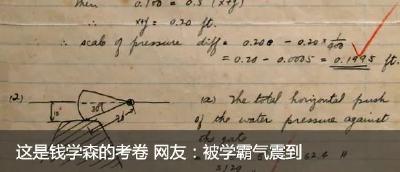 then 0.100 = 0.5 (x+y)
x+y = 0.20 ft.
∴ scale of pressure diff = 0.200 - 0.20 × 1/400
= 0.20 - 0.0005 = 0.1995 ft.
(2)
(a) The total horizontal push
of the water pressure against
the gate
10'
30°
这是钱学森的考卷 网友：被学霸气震到
62.4